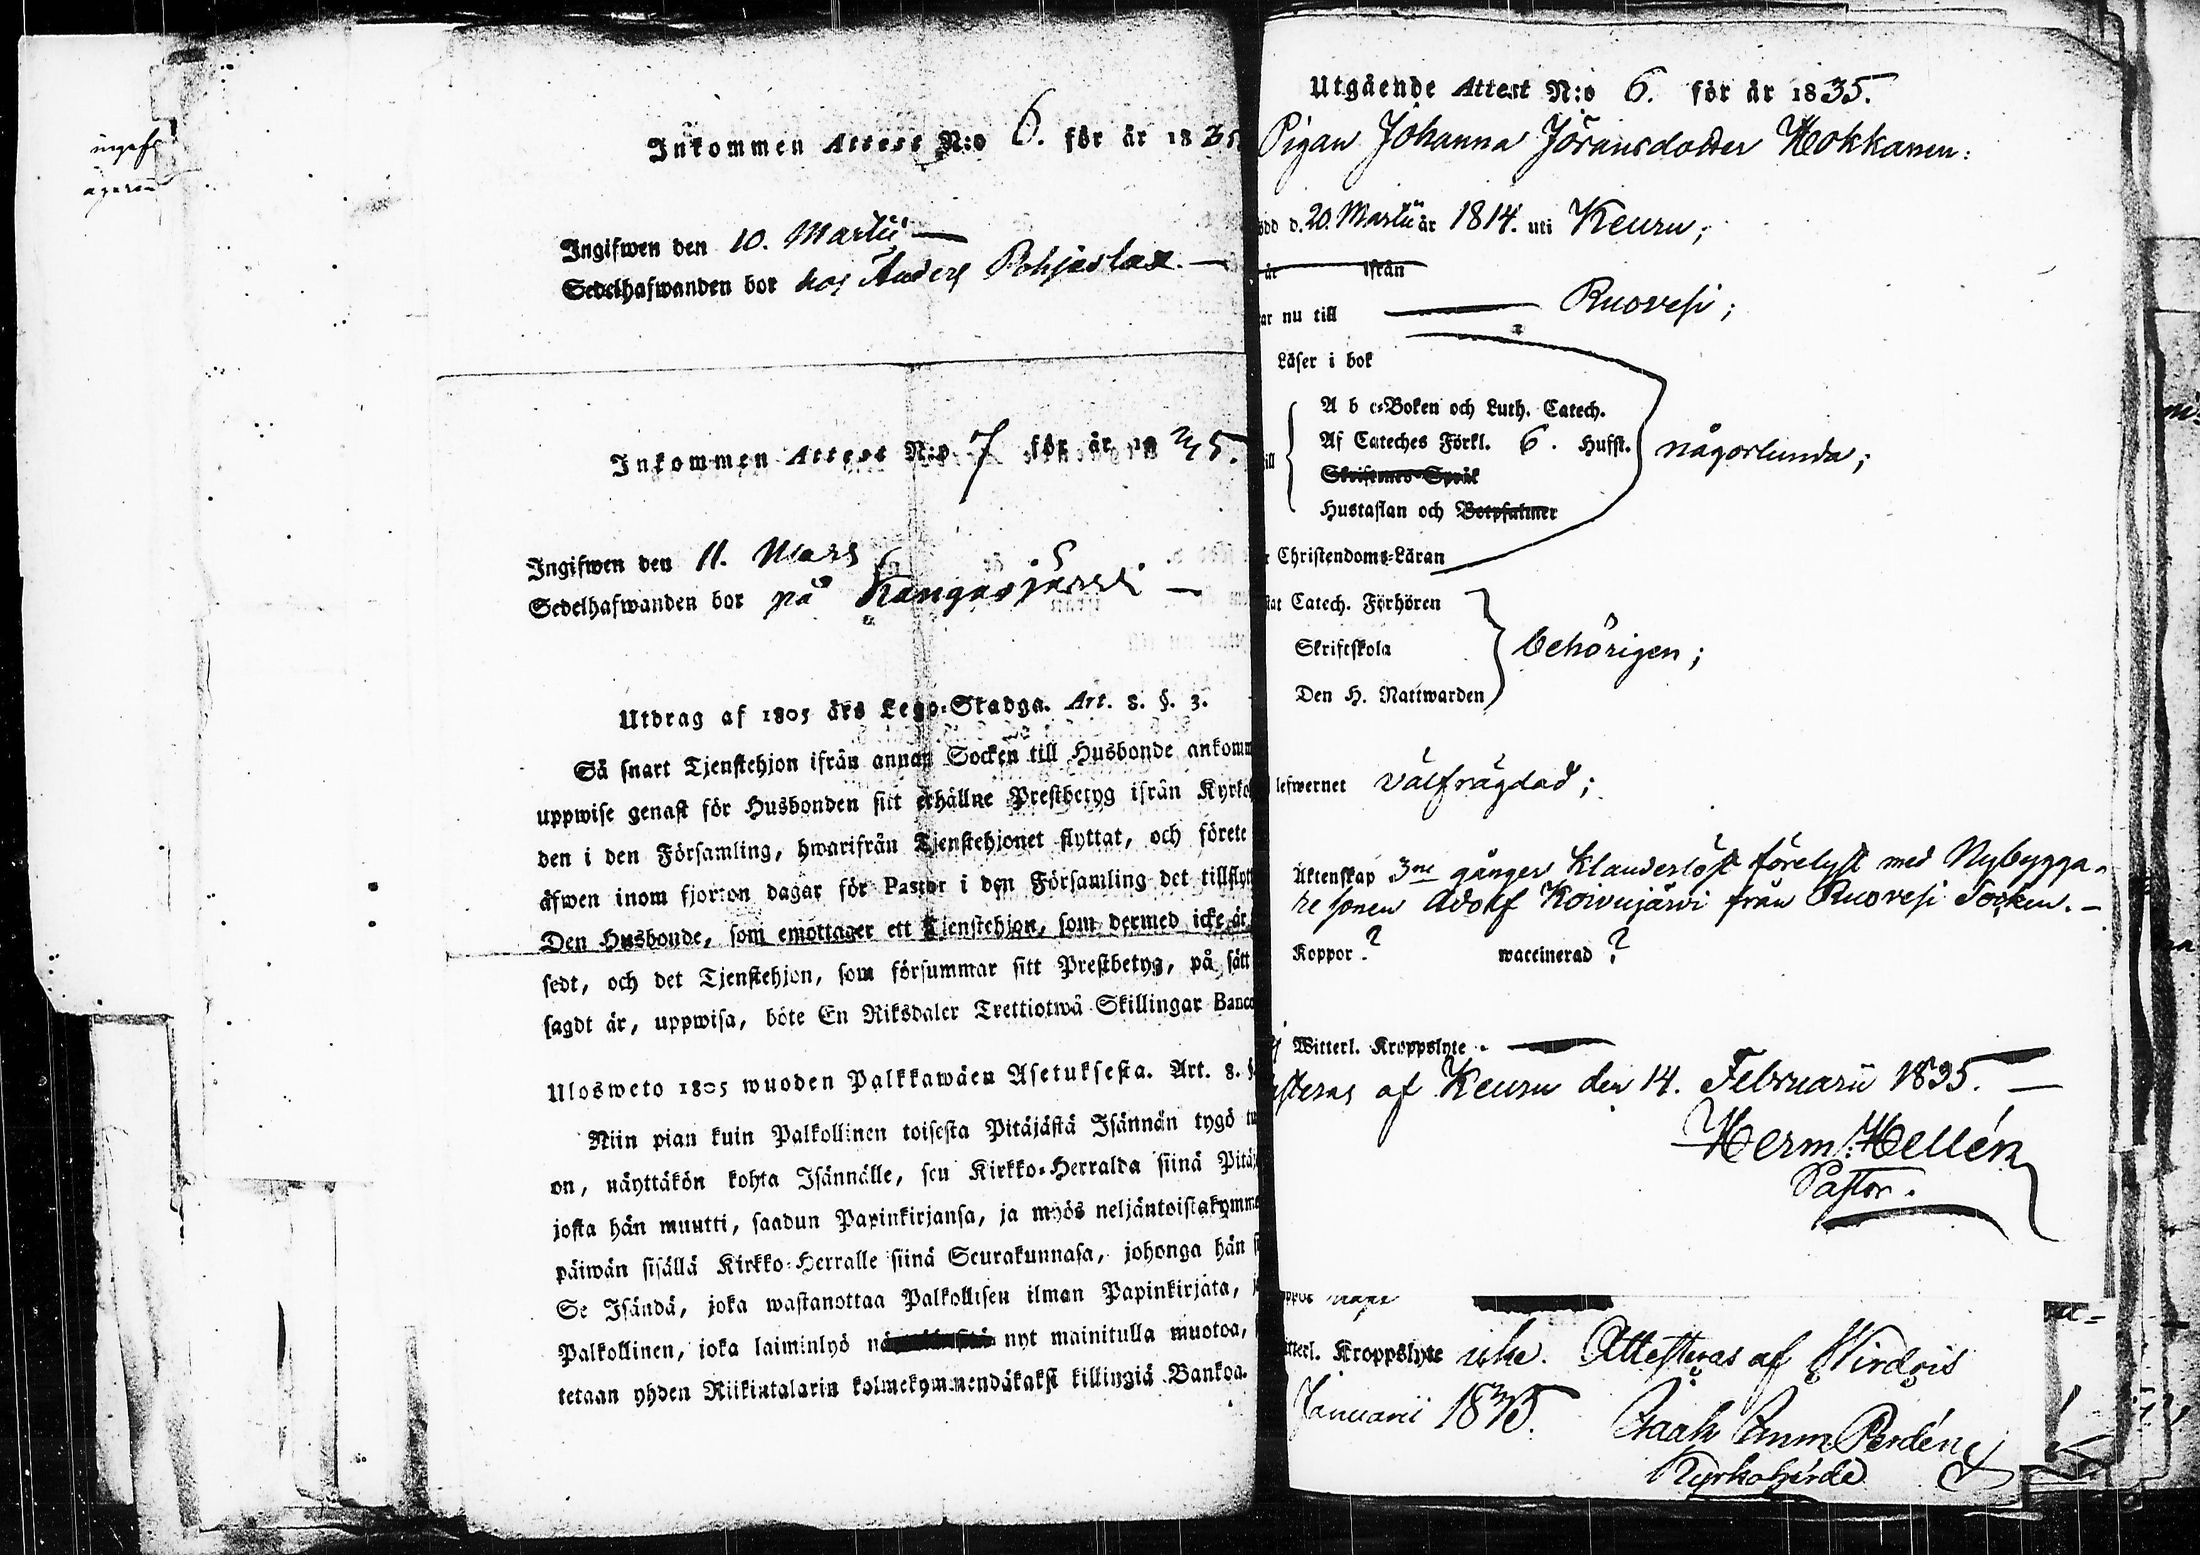 Inkommen Attest N:o 6. för år 1835
Ingifwen den 10. Martii
Sedelhafwanden bor hos Anders Pohjaslax.
Inkommen Attest N:o 7 för år 1835.
Ingifwen den 11. Mars
Sedelhafwanden bor på Kangasjärvi
Utdrag af 1805 års Lego-Stadga. Art. 8. §. 3.
Så snart Tjenstehjon ifrån annan Socken till Husbonde ankomm
uppwise genast för Husbonden sitt erhållne Prestbetyg ifrån Kyrko
den i den Församling, hwarifrån Tjenstehjonet flyttat, och förete
äfwen inom fjorton dagar för Pastor i den Församling det tillflyt
Den Husbonde, som emottager ett Tjenstehjon, som dermed icke är
sedt, och det Tjenstehjon, som försummar sitt Prestbetyg, på sätt
sagdt är, uppwisa, böte En Riksdaler Trettiotwå Skillingar Banco
Ulosweto 1805 wuoden Palkkawäen Asetuksesta. Art. 8. §
Niin pian kuin Palkollinen toisesta Pitäjästä Isännän tygö tu
on, näyttäkön kohta Isännälle, sen Kirkko-Herralda siinä Pitä
josta hän muutti, saadun Papinkirjansa, ja myös neljäntoistakymme
päiwän sisällä Kirkko-Herralle siinä Seurakunnasa, johonga hän s
Se Isändä, joka wastanottaa Palkollisen ilman Papinkirjata, j
Palkollinen, joka laiminlyö nyt mainitulla muotoa,
tetaan yhden Riikintalarin kolmekymmendäkaksi killingiä Bankoa.
Utgående Attest N:o 6. för år 1835.
Pigan Johanna Jöransdotter Hokkanen:
ödd d. 20. Martii år 1814. uti Keuru;
år ifrån
ar nu till Ruovesi;
Läser i bok
A b c-Boken och Luth. Catech.
Af Cateches Förkl. 6. Hufst. någorlunda;
ill
Skriftenes-Språk
Hustaflan och Botpsalmer
r Christendoms-Läran
stat Catech. Förhören
Skriftskola behörigen;
Den H. Nattwarden
lefwernet välfrägdad;
Äktenskap 3ne gånger klanderlöst förelyst med Nybygga-
re sonen Adolf Koivujärvi från Ruovesi Socken.
Koppor ? waccinerad ?
Witterl. Kroppslyte.
steras af Keuru den 14. Februarii 1835.
Herm: Hellén
Pastor.
itterl. Kroppslyte icke. Attesteras af Wirdois
Januarii 1835.
Kyrkoherde